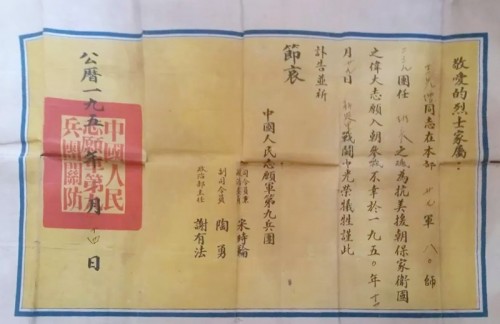 敬愛的烈士家屬：
同志在本部 廿七 軍 八〇 師
團任 之職為抗美援朝保家衛國
之偉大志願入朝參戰不幸於一九五〇年十一
月 日 戰鬭中光榮犧牲謹此
訃告並祈
節哀
中國人民志願軍第九兵團
司令員兼
政治委員 宋時輪
副司令員 陶勇
政治部主任 謝有法
公曆一九五 年 月 十四 日
中國人民
志願軍第九
兵團關防